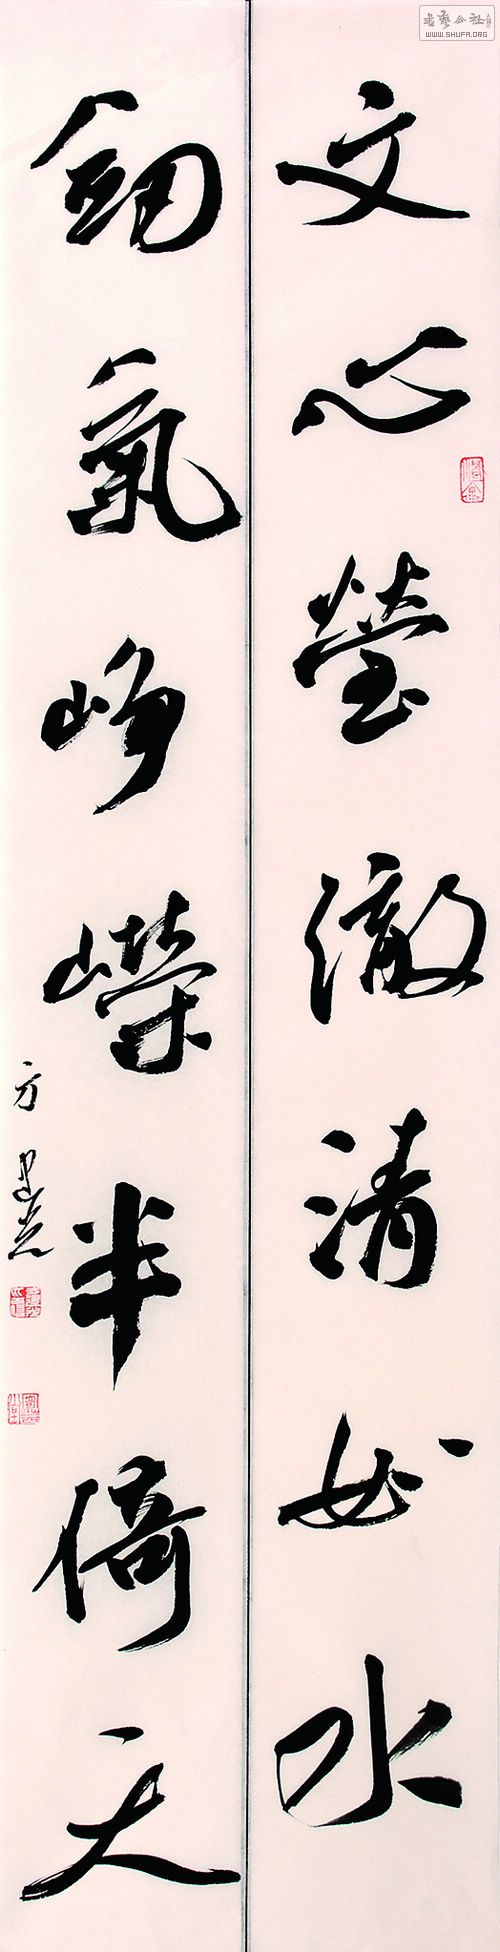 書藝公社
WWW.SHUFA.ORG
文心瑩徹清如水
劍氣崢嶸半倚天
方建光